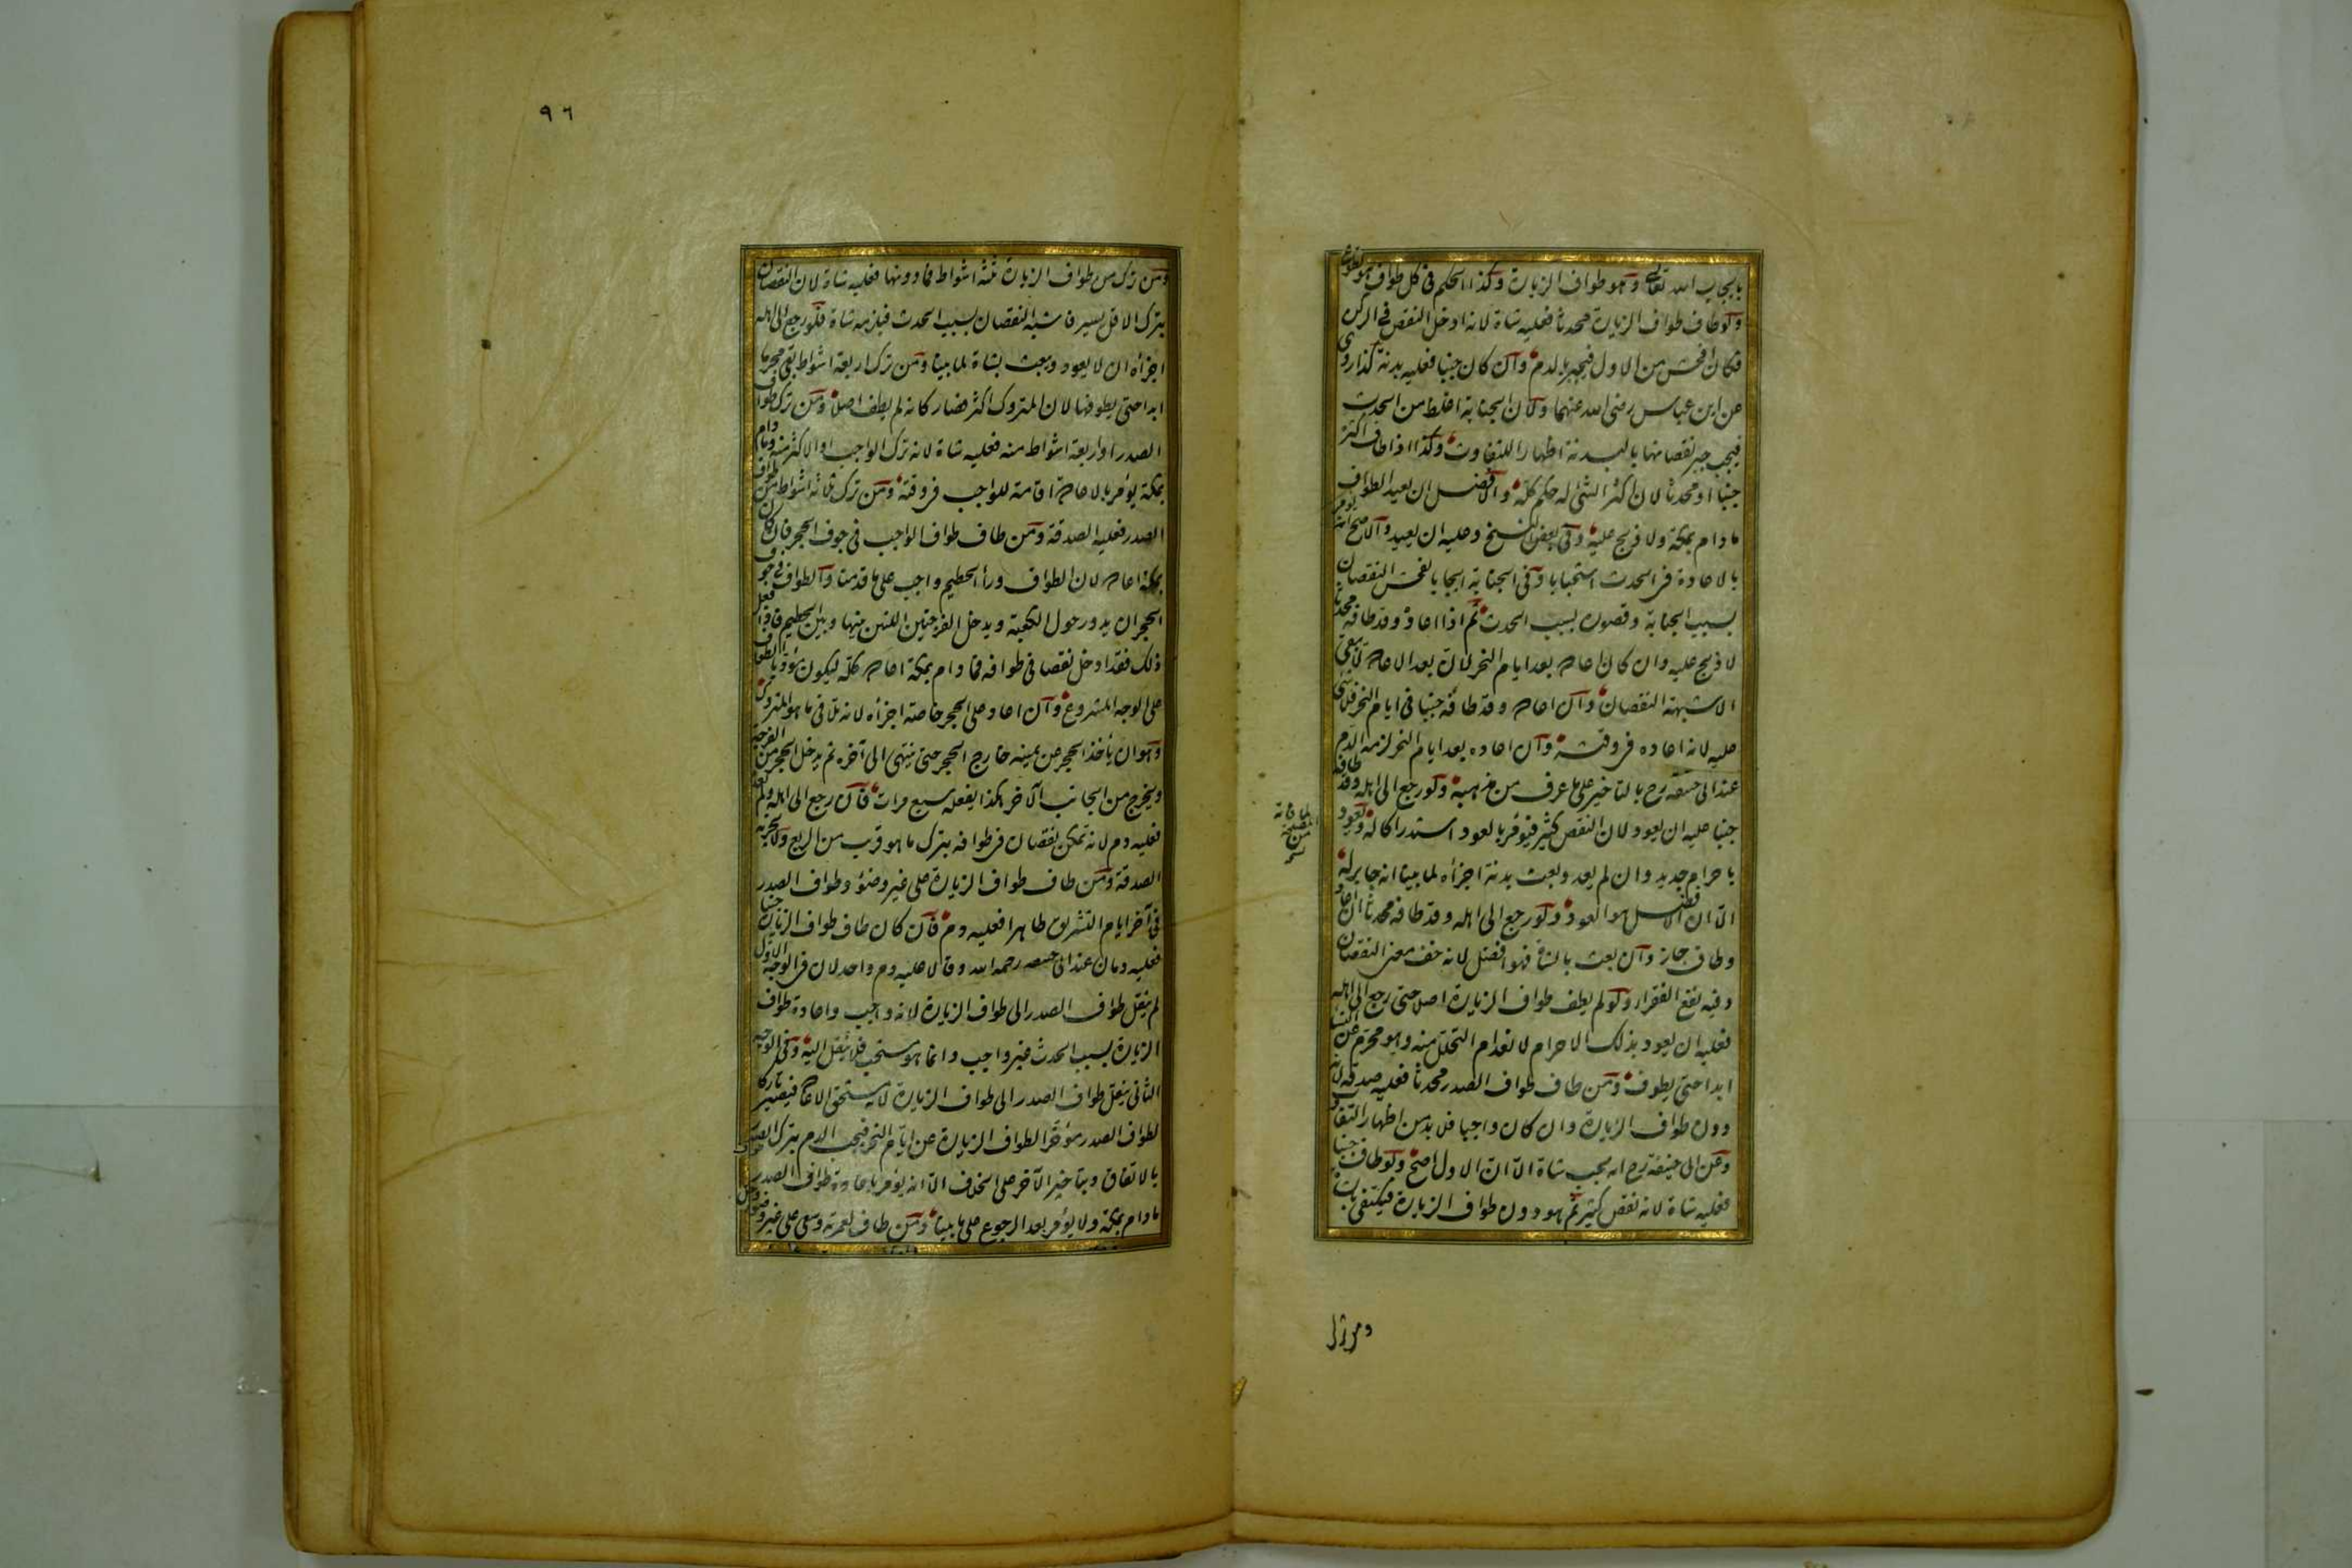 بايجاب الله تعالى وهو طواف الزيارة وكذا الحكم في كل طواف هو تطوع
ولو طاف طواف الزيارة محدثا فعليه شاة لانه ادخل النقص في الركن
فكان افحش من الاول فيجبر بالدم وان كان جنبا فعليه بدنة كذا روى
عن ابن عباس رضى الله عنهما ولان الجنابة اغلظ من الحدث
فيجب جبر نقصانها بالبدنة اظهارا للتفاوت وكذا اذا طاف اكثره
جنبا او محدثا لان اكثر الشئ له حكم كله والافضل ان يعيد الطواف
ما دام بمكة ولا ذبح عليه وفي بعض النسخ وعليه ان يعيد والاصح انه يؤمر
بالاعادة في الحدث استحبابا وفي الجنابة ايجابا لفحش النقصان
بسبب الجنابة وقصوره بسبب الحدث ثم اذا اعاده وقد طافه محدثا
لا ذبح عليه وان كان اعاده بعد ايام النحر لان بعد الاعادة لا يبقى
الا شبهة النقصان وان اعاده وقد طافه جنبا في ايام النحر فلا شئ
عليه لانه اعاده في وقته وان اعاده بعد ايام النحر لزمه الدم
عند ابى حنيفه رح بالتاخير على ما عرف من مذهبه ولو رجع الى اهله وقد طافه
جنبا عليه ان يعود لان النقص كثير فيؤمر بالعود استدراكا له ويعود
باحرام جديد وان لم يعد وبعث بدنة اجزأه لما بينا انه جابر له
الا ان الافضل هو العود ولو رجع الى اهله وقد طافه محدثا ان عاد
وطاف جاز وان بعث بالشاة فهو افضل لانه خف معنى النقصان
وفيه نفع الفقراء ولو لم يطف طواف الزيارة اصلا حتى رجع الى اهله
فعليه ان يعود بذلك الاحرام لانعدام التحلل منه وهو محرم عن النساء
ابدا حتى يطوف ومن طاف طواف الصدر محدثا فعليه صدقه لانه
دون طواف الزيارة وان كان واجبا فلا بد من اظهار التفاوت
وعن ابى حنيفة رح انه يجب شاة الا ان الاول اصح ولو طاف جنبا
فعليه شاة لانه نقص كثير ثم هو دون طواف الزيارة فيكتفى بالشاة
ومن ترك
٩٦
ومن ترك من طواف الزيارة ثلثة اشواط فما دونها فعليه شاة لان النقصان
بترك الاقل يسير فاشبه النقصان بسبب الحدث فيلزمه شاة فلو رجع الى اهله
اجزأه ان لا يعود ويبعث بشاة لما بينا ومن ترك اربعة اشواط بقى محرما
ابدا حتى يطوفها لان المتروك اكثر فصار كانه لم يطف اصلا ومن ترك طواف
الصدر او اربعة اشواط منه فعليه شاة لانه ترك الواجب او الاكثر منه وما دام
بمكة يؤمر بالاعادة اقامة للواجب في وقته ومن ترك ثلاثة اشواط من طواف
الصدر فعليه الصدقة ومن طاف طواف الواجب في جوف الحجر فان كان
بمكة اعاده لان الطواف وراء الحطيم واجب على ما قدمنا والطواف في جوف
الحجر ان يدور حول الكعبة ويدخل الفرجتين اللتين بينها وبين الحطيم فاذا فعل
ذلك فقد ادخل نقصا في طوافه فما دام بمكة اعاده كله ليكون مؤديا للطواف
على الوجه المشروع وان اعاد على الحجر خاصة اجزأه لانه تلافى ما هو المتروك
وهو ان يأخذ الحجر عن يمينه خارج الحجر حتى ينتهى الى آخره ثم يدخل الحجر من الفرجة
ويخرج من الجانب الآخر هكذا يفعله سبع مرات فان رجع الى اهله ولم يعد
فعليه دم لانه تمكن نقصان في طوافه بترك ما هو قريب من الربع ولا تجزيه
الصدقة ومن طاف طواف الزيارة على غير وضوء وطواف الصدر
في آخر ايام التشريق طاهرا فعليه دم فان كان طاف طواف الزيارة جنبا
فعليه دمان عند ابى حنيفه رحمه الله وقالا عليه دم واحد لان في الوجه الاول
لم ينقل طواف الصدر الى طواف الزيارة لانه واجب واعادة طواف
الزيارة بسبب الحدث غير واجب وانما هو مستحب فلا ينقل اليه وفي الوجه
الثانى ينقل طواف الصدر الى طواف الزيارة لانه مستحق الاعادة فيصير تاركا
لطواف الصدر مؤخرا لطواف الزيارة عن ايام النحر فيجب الدم بترك الصدر
بالاتفاق وبتاخير الآخر على الخلاف الا انه يؤمر باعادة طواف الصدر
ما دام بمكة ولا يؤمر بعد الرجوع على ما بينا ومن طاف لعمرته وسعى على غير وضوء